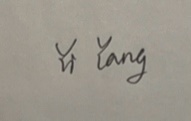 Yi Yang